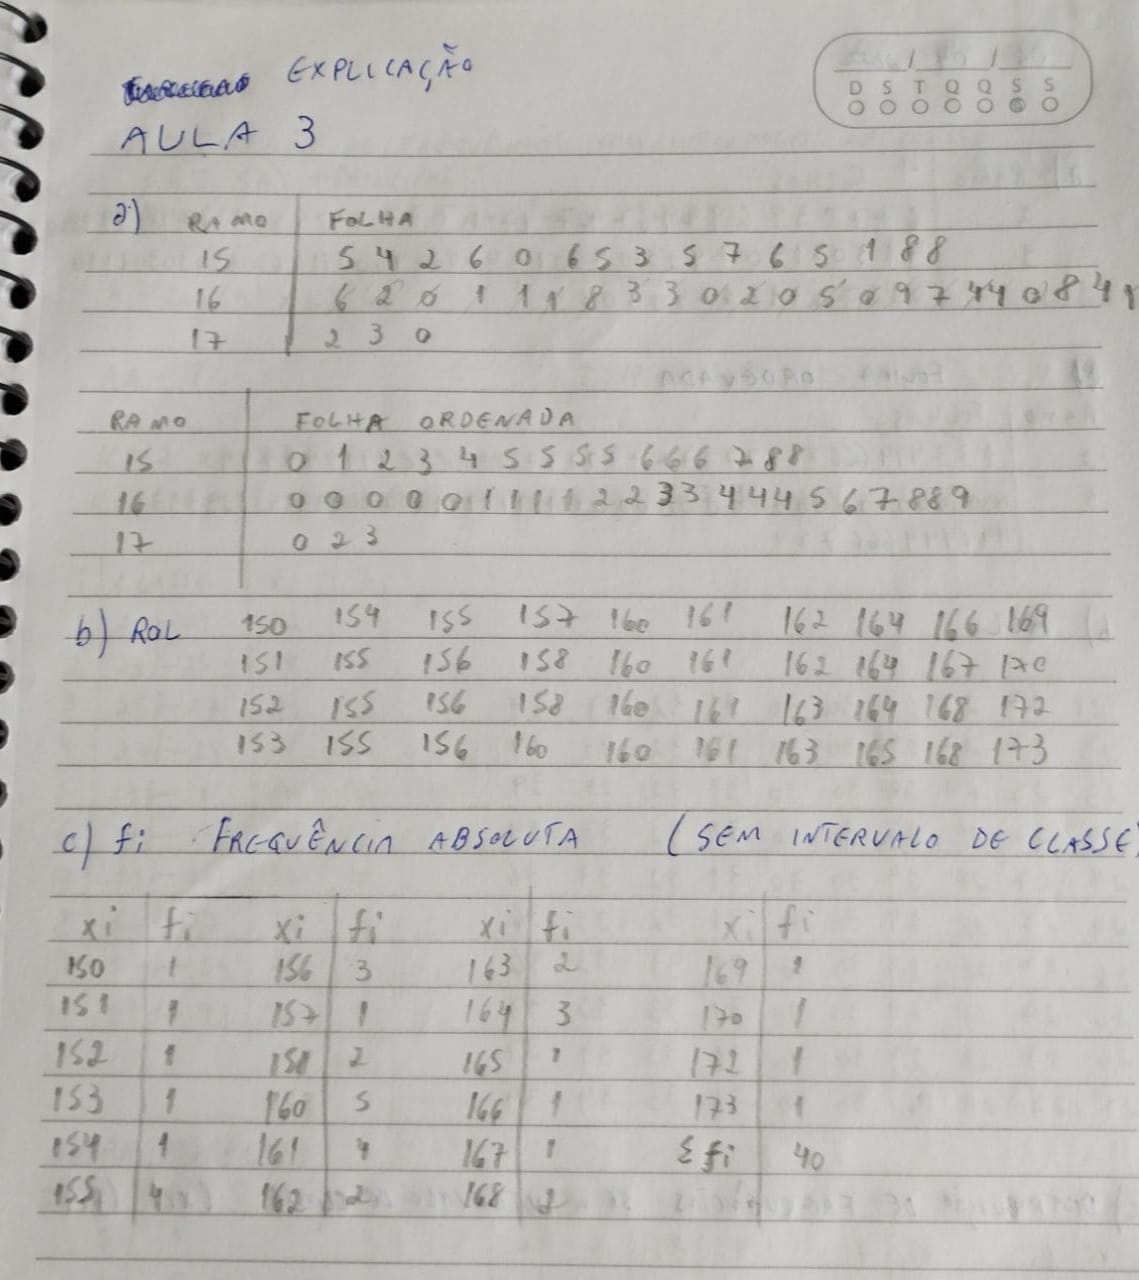 EXPLICAÇÃO
D S T Q Q S S
AULA 3
a) RAMO FOLHA
15 5 4 2 6 0 6 5 3 5 7 6 5 1 8 8
16 6 2 0 1 1 1 8 3 3 0 2 0 5 0 9 7 4 4 0 8 4 1
17 2 3 0
RAMO FOLHA ORDENADA
15 0 1 2 3 4 5 5 5 5 6 6 6 7 8 8
16 0 0 0 0 0 1 1 1 1 2 2 3 3 4 4 4 5 6 7 8 8 9
17 0 2 3
b) ROL 150 154 155 157 160 161 162 164 166 169
151 155 156 158 160 161 162 164 167 170
152 155 156 158 160 161 163 164 168 172
153 155 156 160 160 161 163 165 168 173
c) fi FREQUÊNCIA ABSOLUTA (SEM INTERVALO DE CLASSE)
xi fi xi fi xi fi xi fi
150 1 156 3 163 2 169 1
151 1 157 1 164 3 170 1
152 1 158 2 165 1 172 1
153 1 160 5 166 1 173 1
154 1 161 4 167 1 Σfi 40
155 4 162 2 168 2